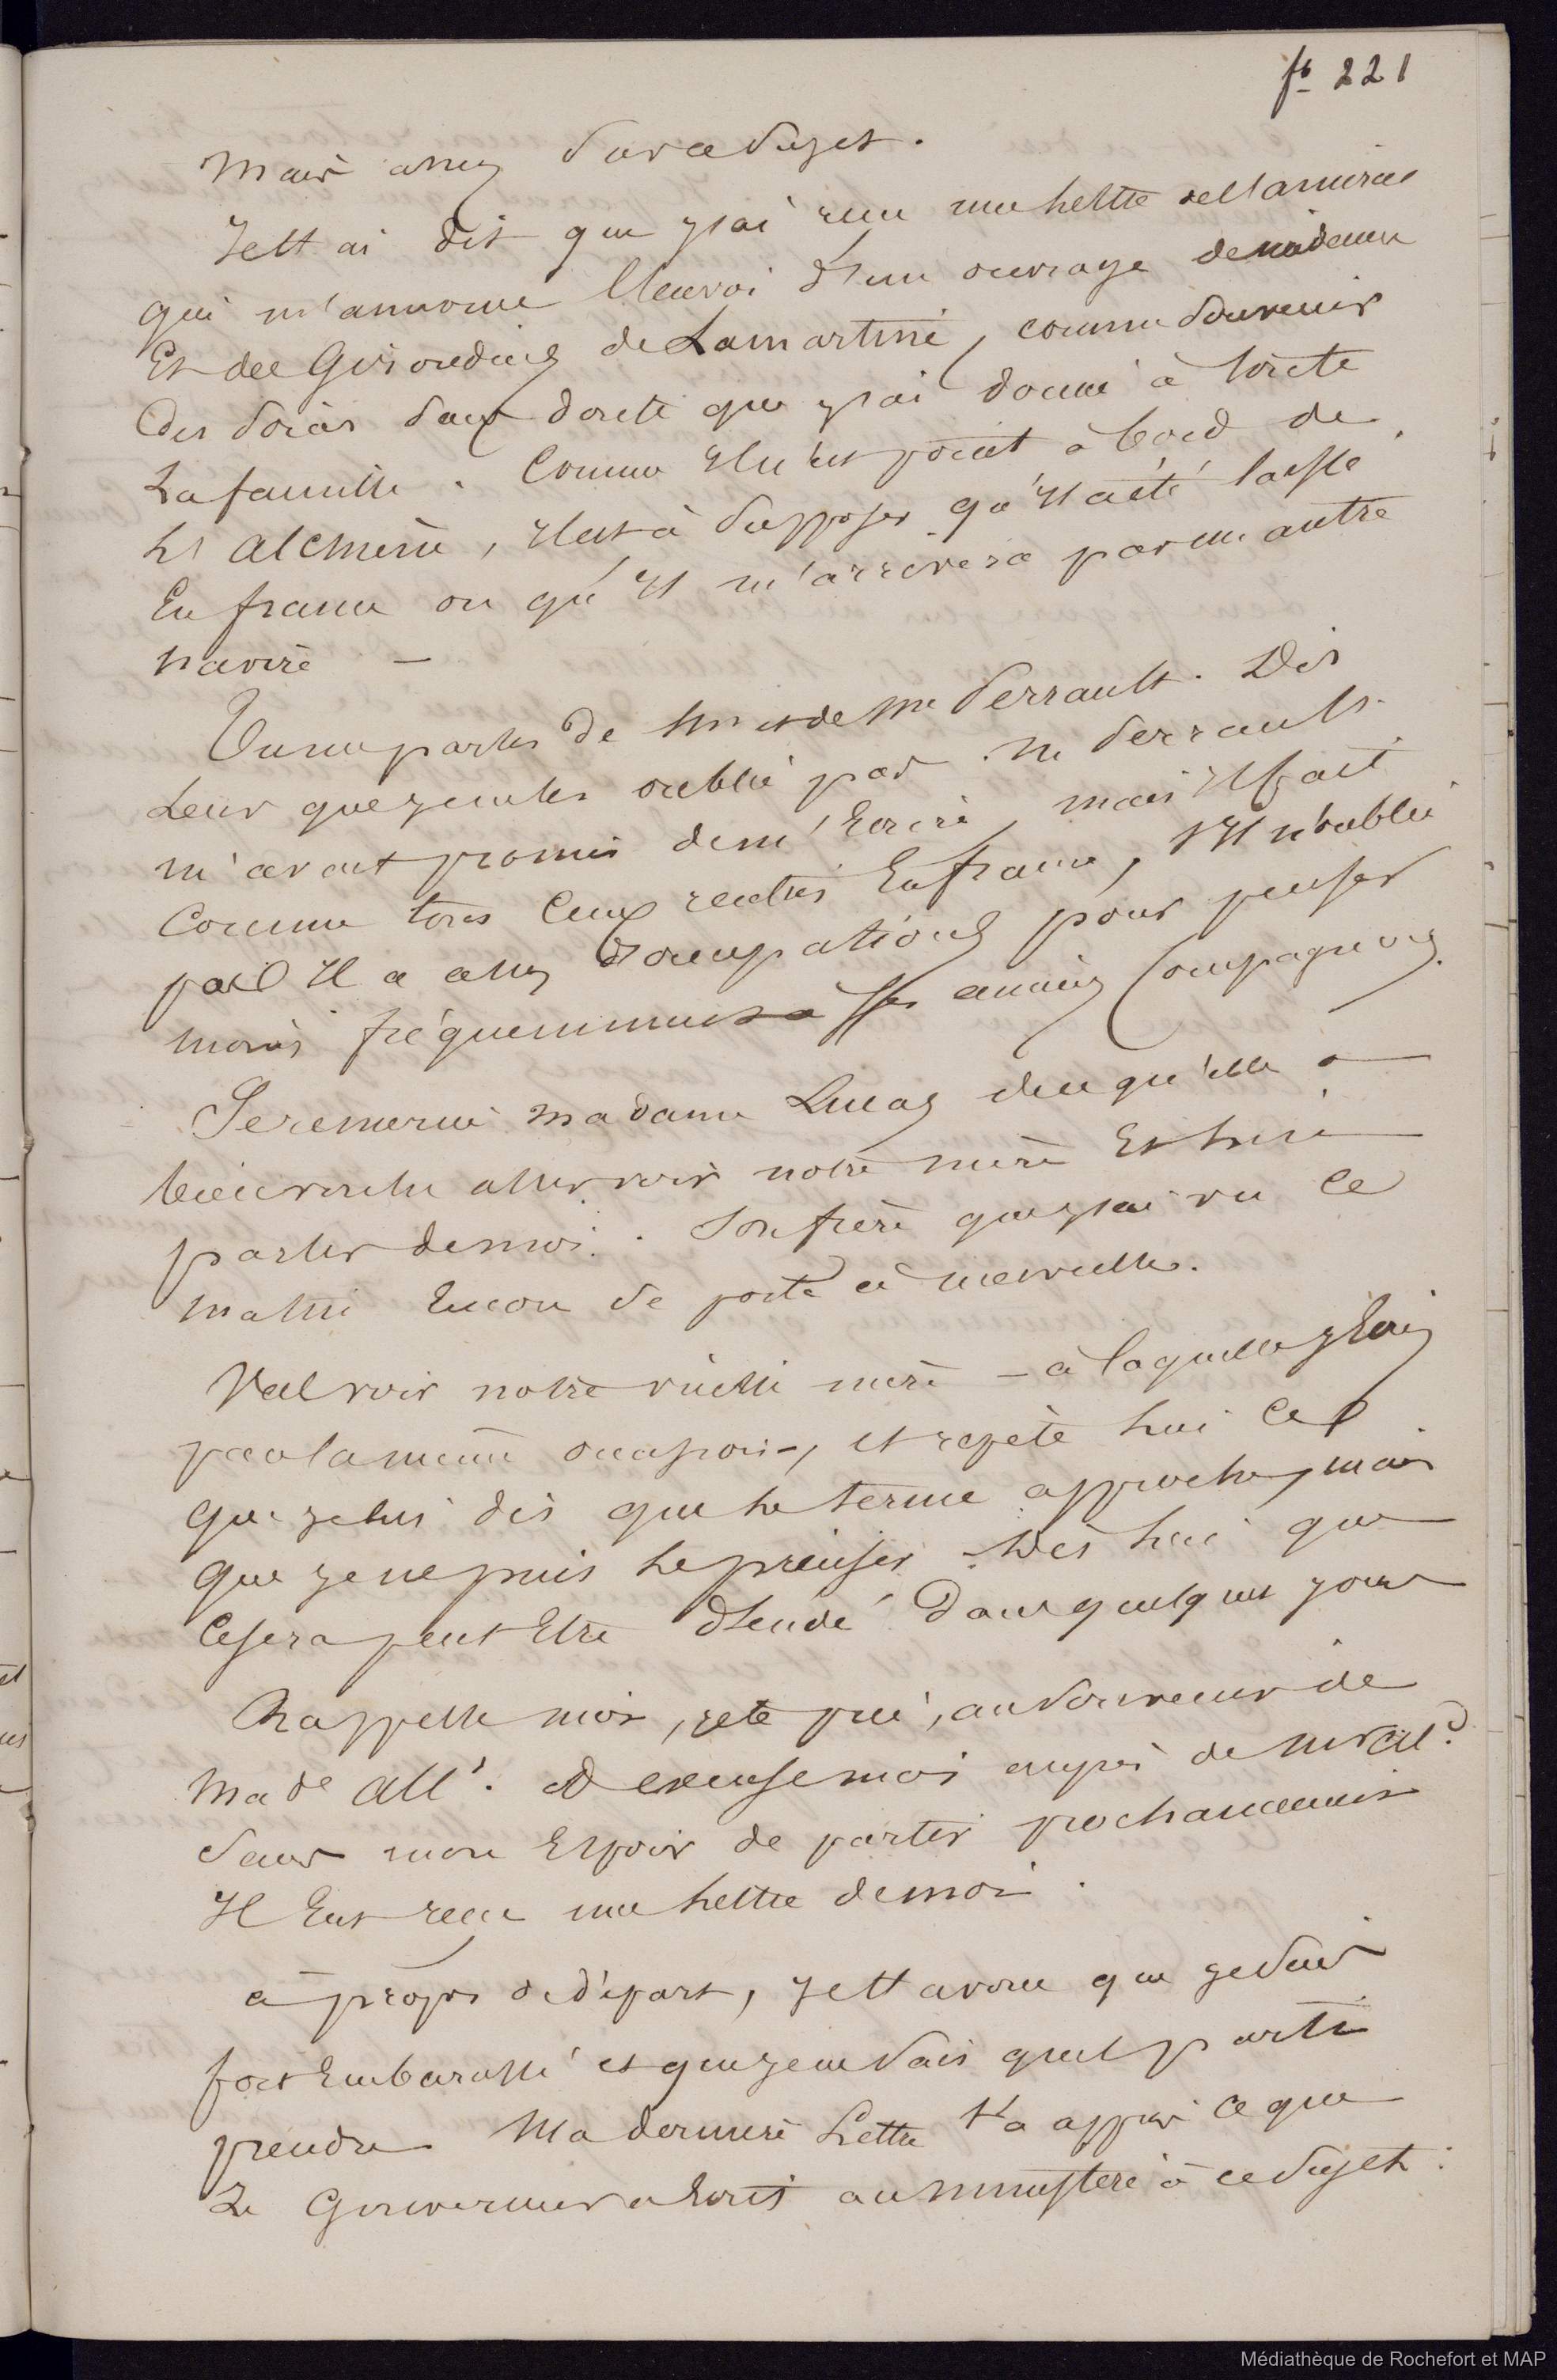 f° 221
Mais assez sur ce sujet.
Je t'ai dit que j'ai reçu une lettre de l'amiral
qui m'annonce l'envoi d'un ouvrage de madame
Et des Girondins de Lamartine, comme souvenir
des soins sans doute que j'ai donné à toute
La famille. Comme il n'est point à bord de
L'Alcmène, il est à supposer qu'il a été laissé
En france ou qu'il m'arrivera par un autre
navire —
Tu me parles de Mr et de Me Perrault. Dis
Leur que je ne les oublie pas. Mr Perrault
m'avait promis de m'Ecrire, mais il fait
Comme tous Ceux rentrés En france, s'il n'oublie
pas il a assez d'occupations pour penser
moins fréquemment à Ses anciens Compagnons.
Je remercie madame Lucas de ce qu'elle a
bien voulu aller voir notre mère Et lui
parler de moi. Son frère que j'ai vu Ce
matin Encore se porte à merveille.
Va voir notre vieille mère — à laquelle j'Ecris
par la même occasion —, et repète lui Ce
que je lui dis que le terme approche, mais
que je ne puis le préciser. Dès lui que
Ce sera peut Etre décidé Dans quelques jours
Rappelle moi, je te prie, au souvenir de
Made All. et excuse moi auprès de Mr All.
Sans mon Espoir de partir prochainement
Il Eut reçu une lettre de moi.
à propos de départ, je t'avoue que je suis
fort Embarassé et que je ne sais quel parti
prendre. Ma dernière Lettre t'a appris ce que
Le Gouverneur a Ecrit au ministère à ce sujet :
Médiathèque de Rochefort et MAP